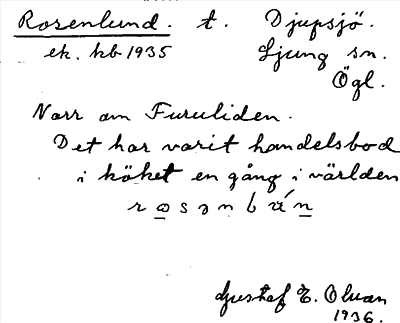 Rosenlund. t. Djupsjö.
ek. kb 1935 Ljung sn.
Ögl.
Norr om Furuliden.
Det har varit handelsbod
i köket en gång i världen
Gustaf E. Olsson
1936.